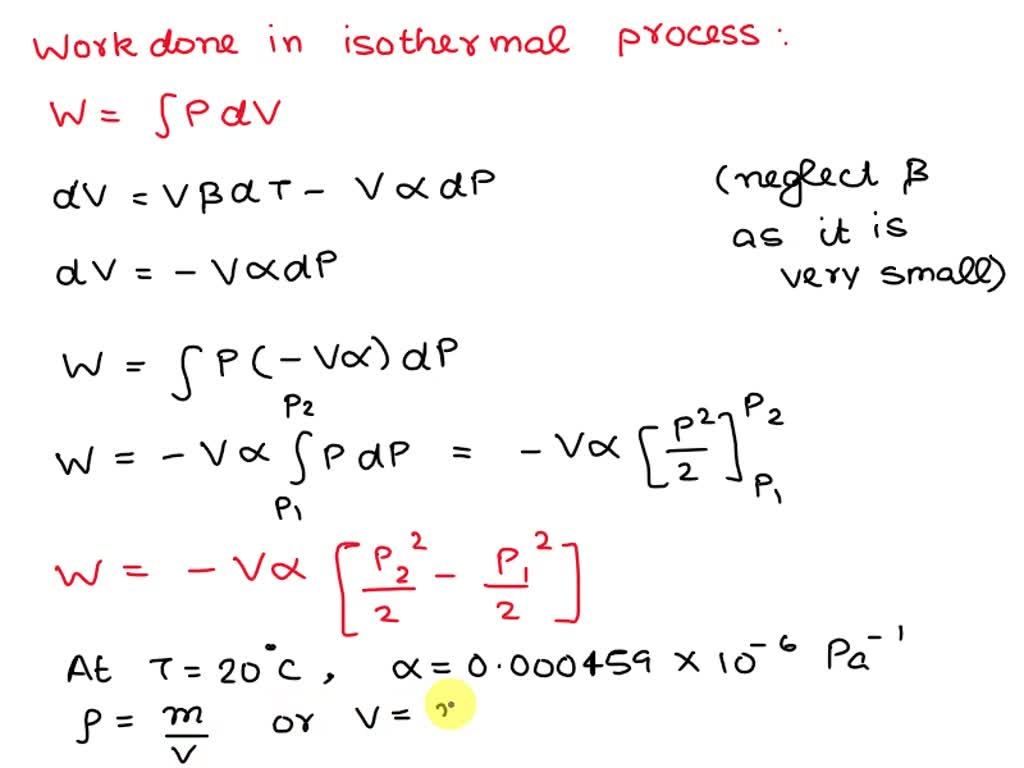 Work done in isothermal process :
W = ∫ P dV
dV = VβdT - VαdP
(neglect β
as it is
very small)
dV = - VαdP
W = ∫ P(- Vα) dP
W = - Vα ∫_{P1}^{P2} P dP = - Vα [P²/2]_{P1}^{P2}
W = - Vα [P₂²/2 - P₁²/2]
At T = 20°C , α = 0.000459 × 10⁻⁶ Pa⁻¹
ρ = m/V or V =